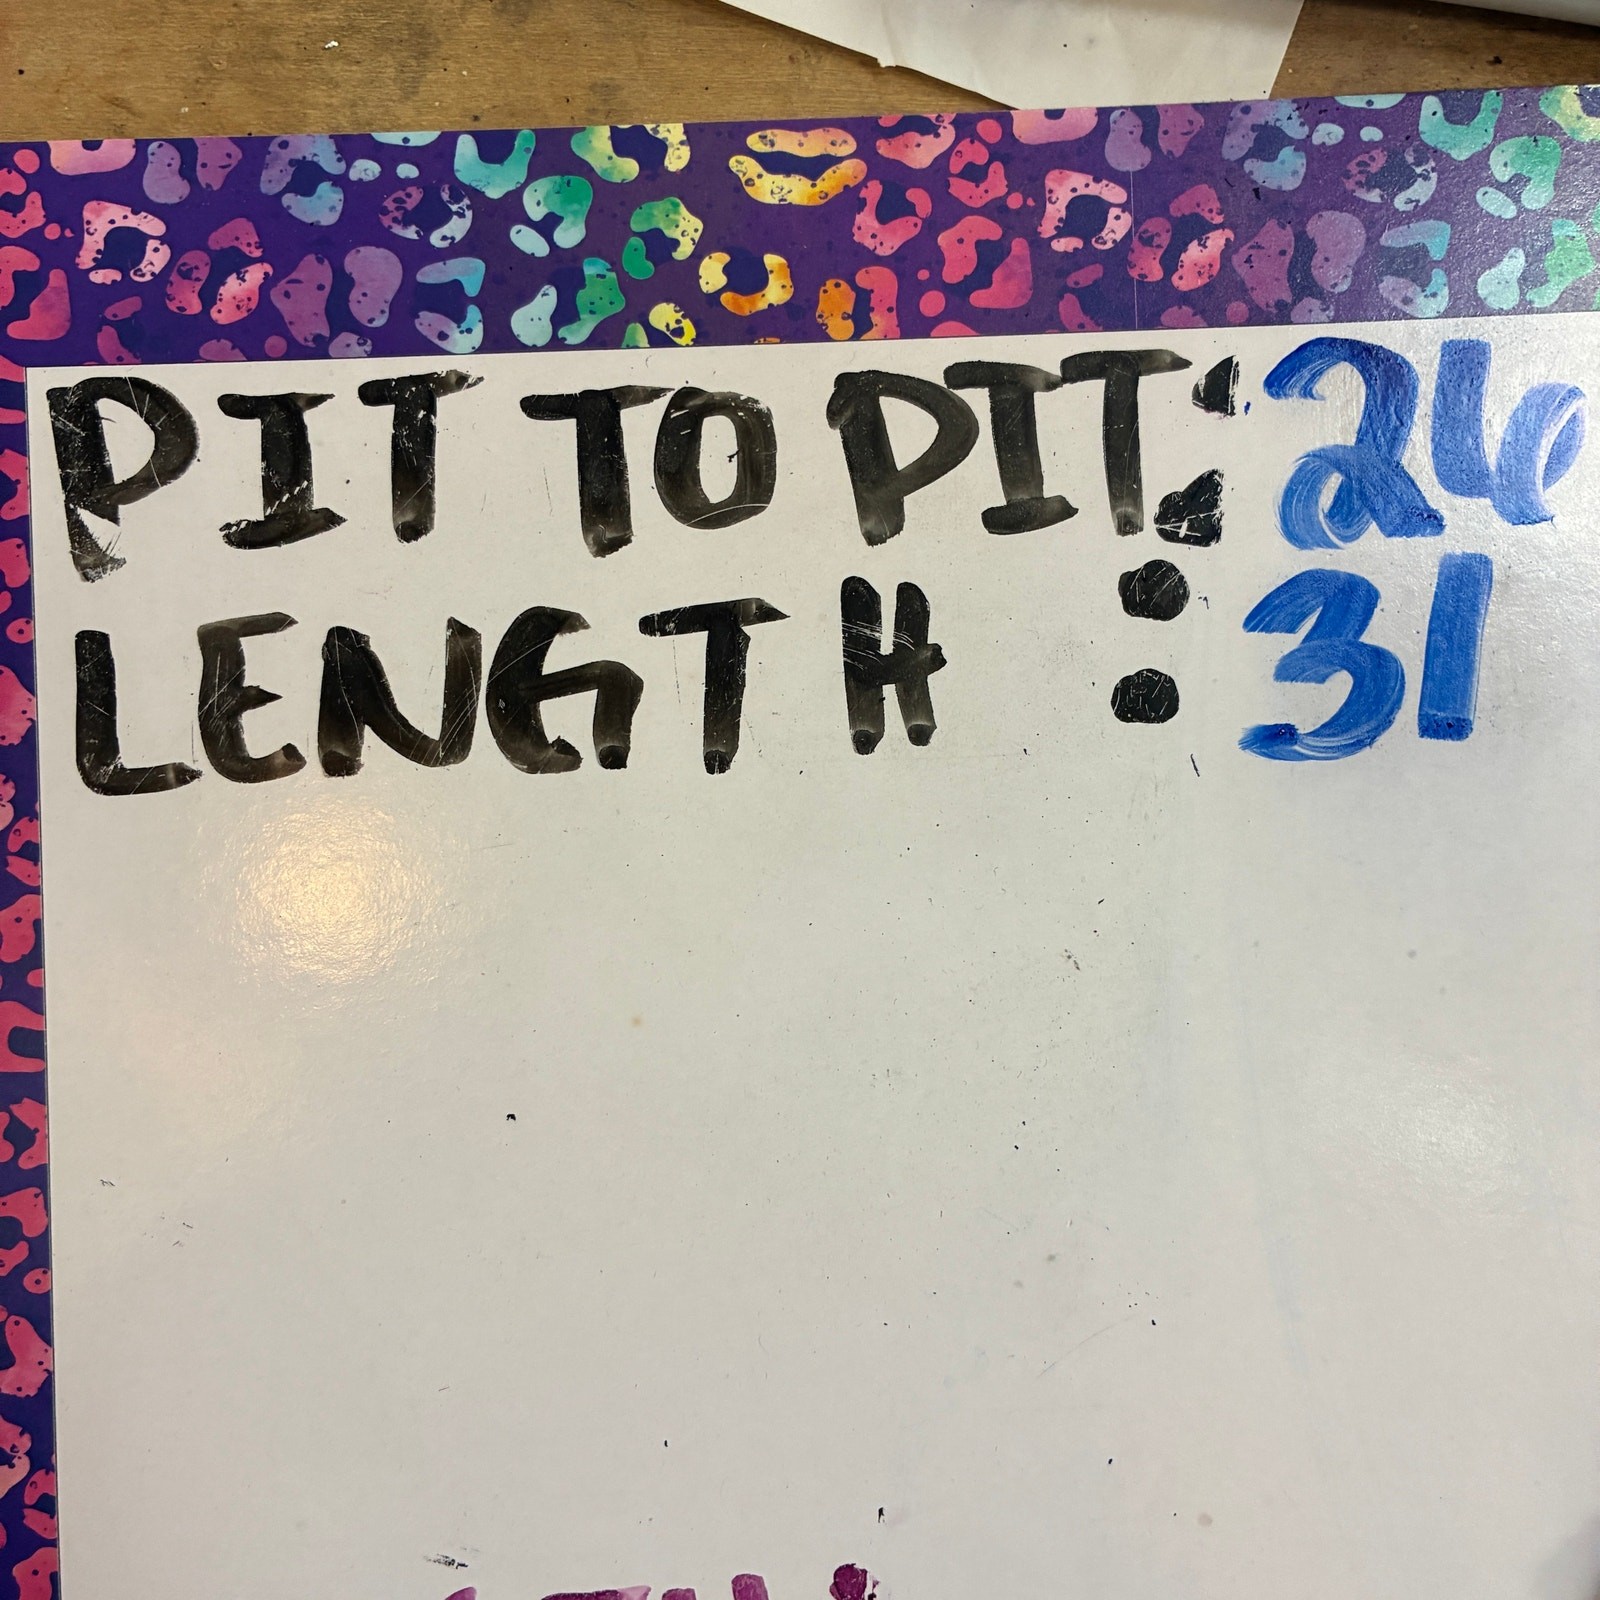 PIT TO PIT: 26
LENGTH : 31